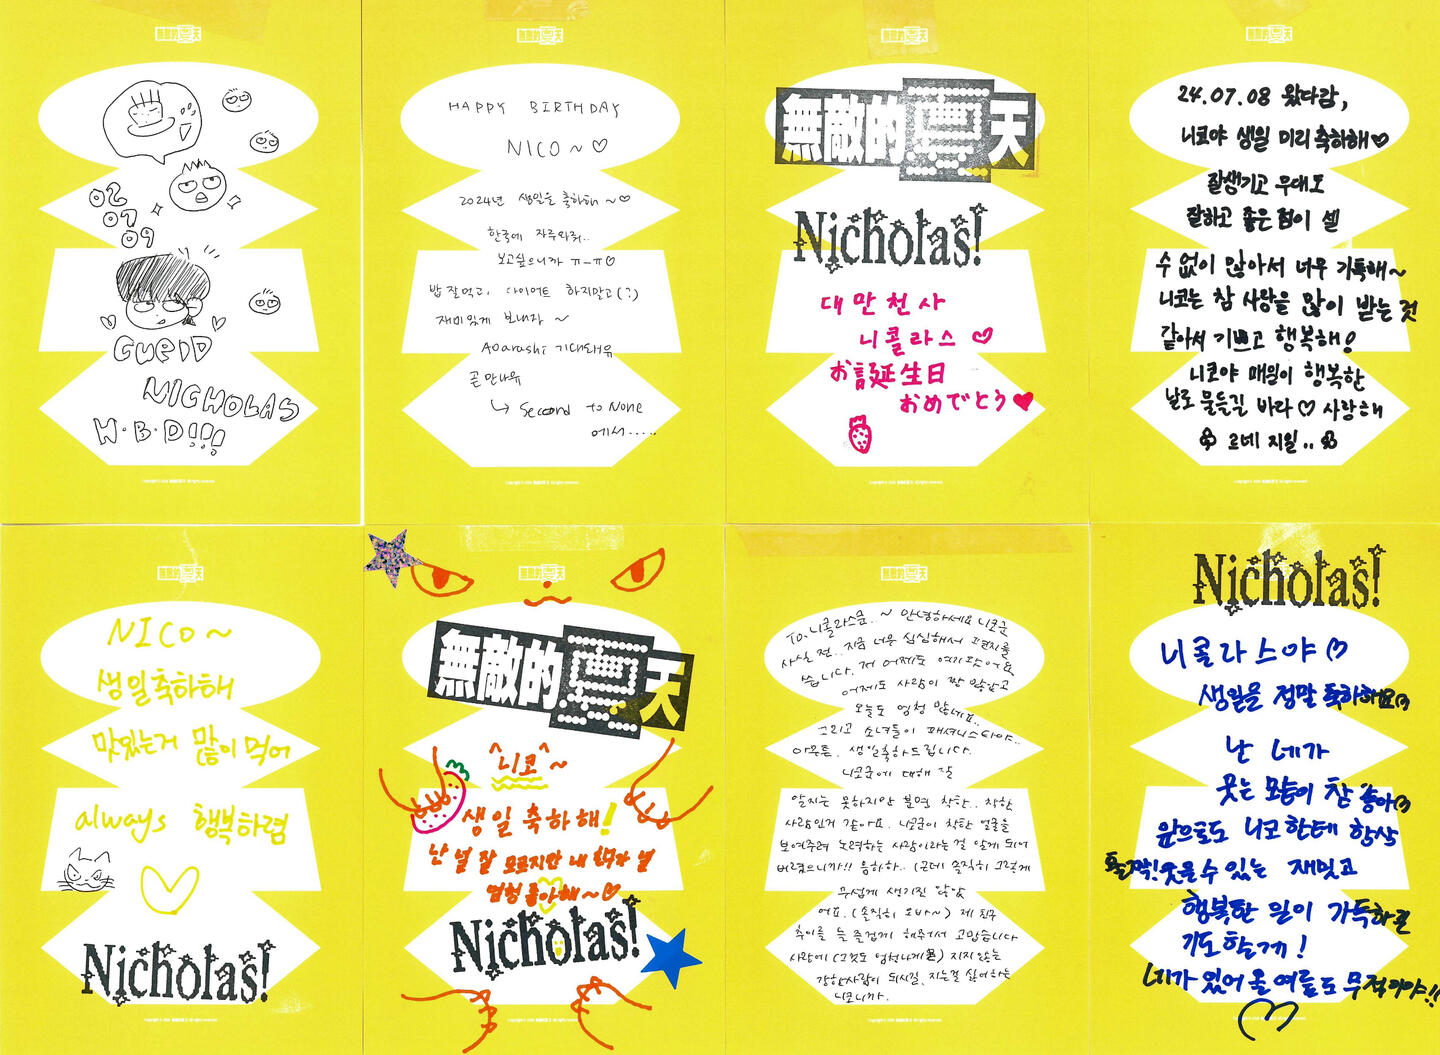 無敵的夏天
02
07
09
CUPID
NICHOLAS
H·B·D!!!
無敵的夏天
HAPPY BIRTHDAY
NICO ~ ♡
2024년 생일을 축하해 ~♡
한국에 자주와줘..
보고싶으니까 ㅠ-ㅠ♡
밥 잘먹고, 다이어트 하지말고(?)
재미있게 보내자 ~
Aoarashi 기대돼유
곧 만나유
↳ Second to None
에서.....
無敵的夏天
無敵的夏天
Nicholas!
대만천사
니콜라스 ♡
お誕生日
おめでとう♥
無敵的夏天
24.07.08 왔다감,
니코야 생일 미리 축하해♡
잘생기고 무대도
잘하고 좋은 점이 셀
수 없이 많아서 너무 기특해~
니코는 참 사랑을 많이 받는 것
같아서 기쁘고 행복해!
니코야 매일이 행복한
날로 물들길 바라♡ 사랑해
르네 지일..
無敵的夏天
NICO~
생일축하해
맛있는거 많이 먹어
always 행복하렴
Nicholas!
無敵的夏天
無敵的夏天
니코~
생일 축하해!
난 널 잘 모르지만 내 친구가 널
엄청 좋아해~♡
Nicholas!
無敵的夏天
To. 니콜라스군..~ 안녕하세요 니코군
사실 전.. 지금 너무 심심해서 편지를
씁니다. 저 어제도 여기 왔어요
어제도 사람이 짱 많았고
오늘도 엄청 많네요..
그리고 소녀들이 패셔니스타야..
아무튼. 생일축하드립니다.
니코군에 대해 잘
알지는 못하지만 보면 착한.. 착한
사람인거 같아요. 니코군이 착한 얼굴을
보여주려 노력하는 사람이라는 걸 알게 되어
버렸으니까!! 음하하.. (근데 솔직히 그렇게
무섭게 생기진 않았
어요. (솔직히 오바~) 제 친구
추이를 늘 즐겁게 해주셔서 고맙습니다
사랑에 (그것도 엄청나게) 지지 않는
강한사람이 되시길. 지는걸 싫어하는
니코니까.
Nicholas!
니콜라스야♡
생일을 정말 축하해요♡
난 네가
웃는 모습이 참 좋아♡
앞으로도 니코한테 항상
활짝! 웃을 수 있는 재밌고
행복한 일이 가득하길
기도할게!
네가 있어 올 여름도 무적이야!!